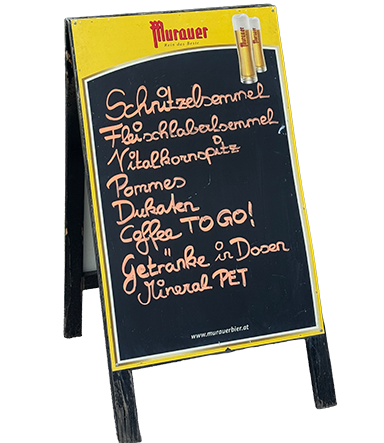 Murauer
Rein das Beste
Schnitzelsemmel
Fleischlaberlsemmel
Vitalkornspitz
Pommes
Dukaten
Coffee TO GO!
Getränke in Dosen
Mineral PET
www.murauerbier.at